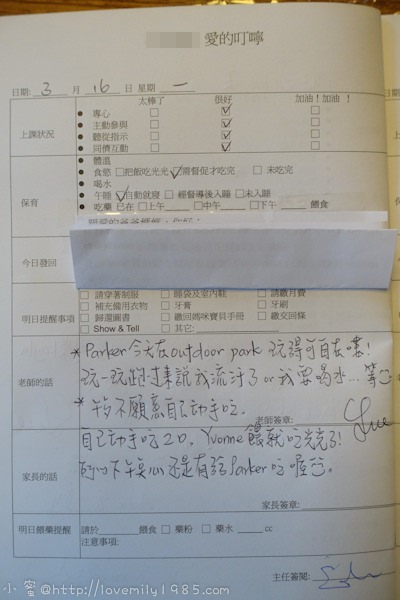 愛的叮嚀
日期: 3 月 16 日 星期 一
太棒了 很好 加油!加油 !
上課狀況
● 專心 □ ☑ □
● 主動參與 □ ☑ □
● 聽從指示 □ ☑ □
● 同儕互動 □ ☑ □
保育
● 體溫
● 食慾 □把飯吃光光 ☑需督促才吃完 □ 未吃完
● 喝水
● 午睡 ☑自動就寢 □經督導後入睡 □未入睡
● 吃藥 已在 □上午 □中午 □下午 餵食
今日發回
明日提醒事項
□ 請穿著制服 □ 睡袋及室內鞋 □ 請繳月費
□ 補充備用衣物 □ 牙膏 □ 牙刷
□ 歸還圖書 □ 繳回媽咪寶貝手冊 □ 繳交回條
□ Show & Tell □ 其它:
老師的話
*Parker今天在outdoor park 玩得可自在嘍!
玩一玩跑過來說我流汗了or我要喝水... 等
* 午餐不願意自己動手吃。
老師簽章:
自己動手吃2口, Yvonne 餵就吃光光了!
下午點心還是有給Parker吃喔
家長的話
家長簽章:
明日餵藥提醒
請於 餵食 □ 藥粉 □ 藥水 cc
注意事項:
主任簽閱:
小 蜜 @http://lovemily1985.com/